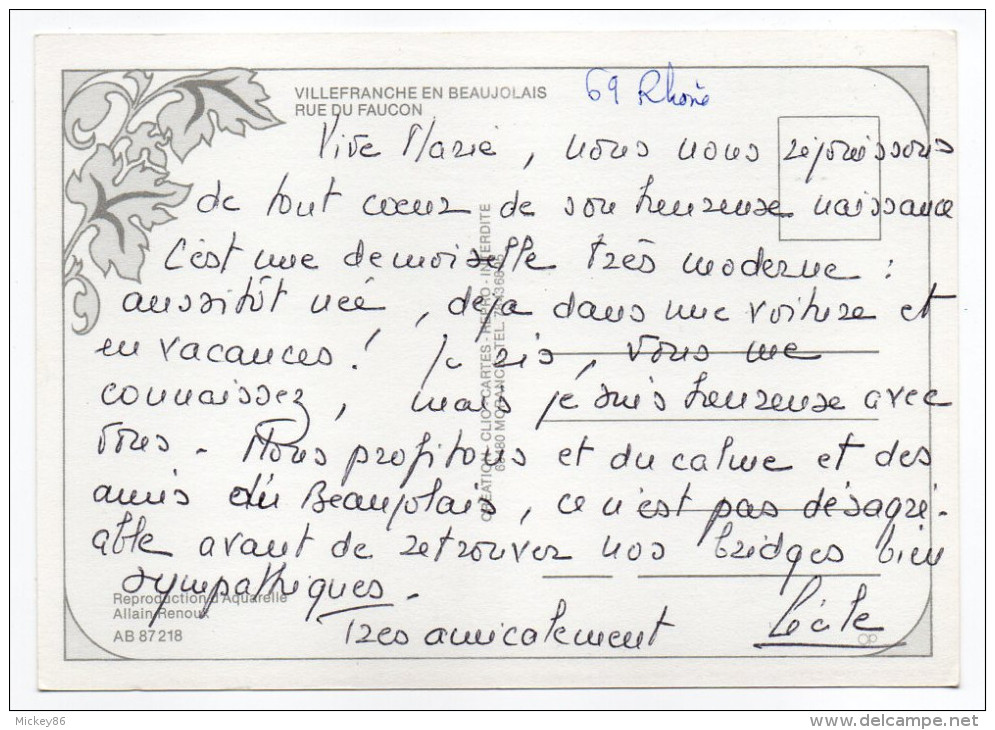 VILLEFRANCHE EN BEAUJOLAIS
RUE DU FAUCON
69 Rhône
Vive Marie, nous nous réjouissons
de tout cœur de son heureuse naissance
C'est une demoiselle très moderne :
aussitôt née, déjà dans une voiture et
en vacances ! Je ris, vous me
connaissez, mais je suis heureuse avec
vous. Nous profitons et du calme et des
amis du Beaujolais, ce n'est pas désagré-
able avant de retrouver nos bridges bien
sympathiques.
Très amicalement Cécile
CREATION - CLIO - CARTES - REPRO - INTERDITE
MORANCE - TEL.
Reproduction d'Aquarelle
Allain Renoux
AB 87218
Mickey86
delcampe.net